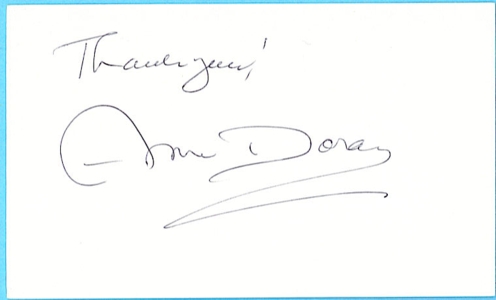 Thank you!
Ann Doran